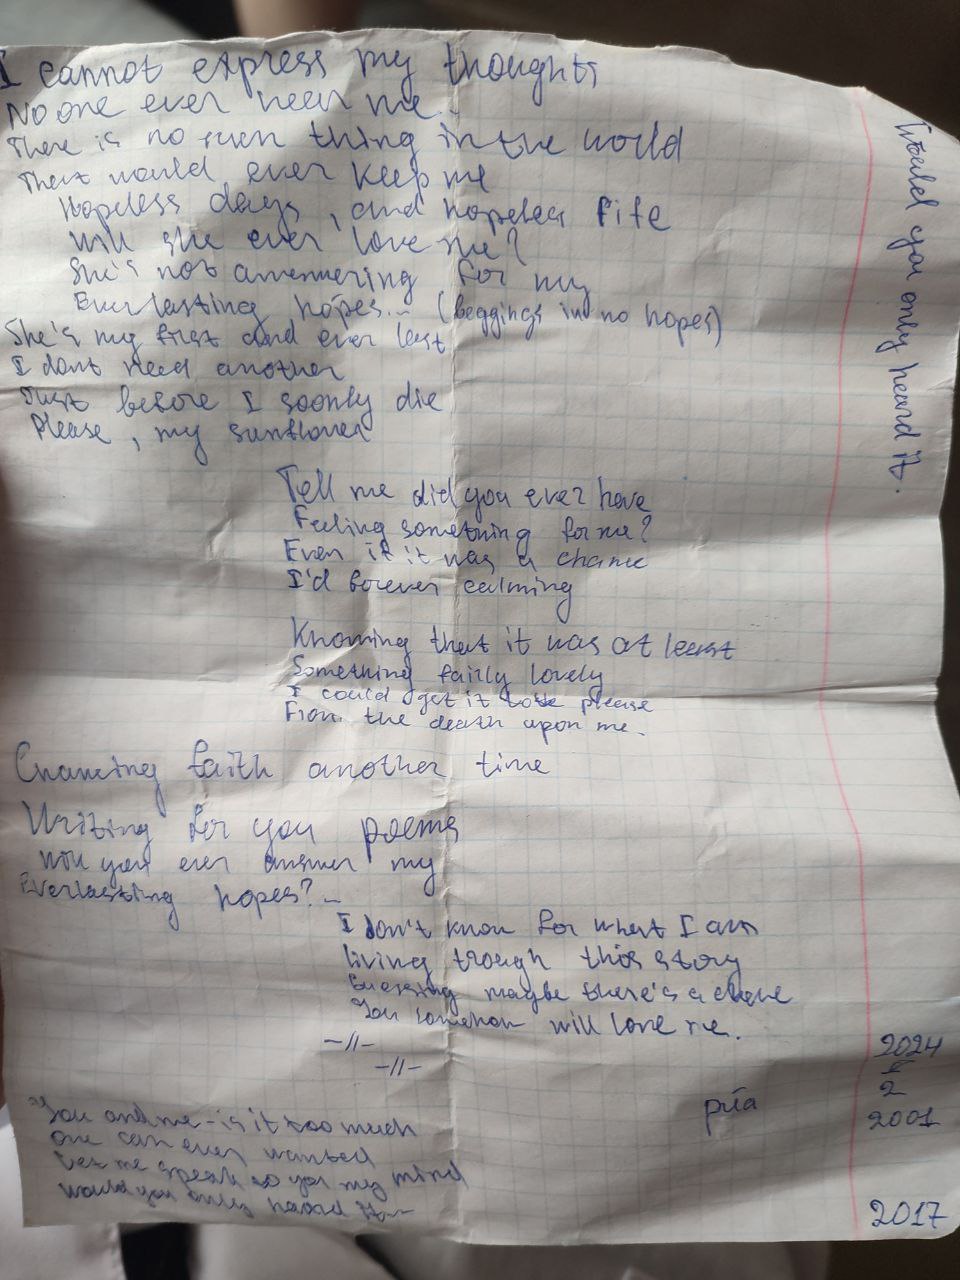 I cannot express my thoughts
No one ever near me.
There is no even thing in the world
That would ever keep me
Hopeless days, and hopeless
Will she ever love me?
She's not answering for my
Everlasting hopes... (beggings in no hopes)
She's my first and ever last
I dont need another
Just before I soonly die
Please, my sunflower
Tell me did you ever have
Feeling something for me?
Even if it was a chance
I'd forever calming
Knowing that it was at least
Something fairly lovely
I could get it please
From the death upon me.
Chancing faith another time
Writing for you poems
Will you ever answer my
Everlasting hopes?...
I don't know for what I am
living trough this story
Guessing maybe there's a chance
You somehow will love me.
-//-
-//-
You and me - is it too much
One can ever wanted
Let me speak to you my mind
Would you only heard it...
Would you only heard it.
2024
2
2001
2017